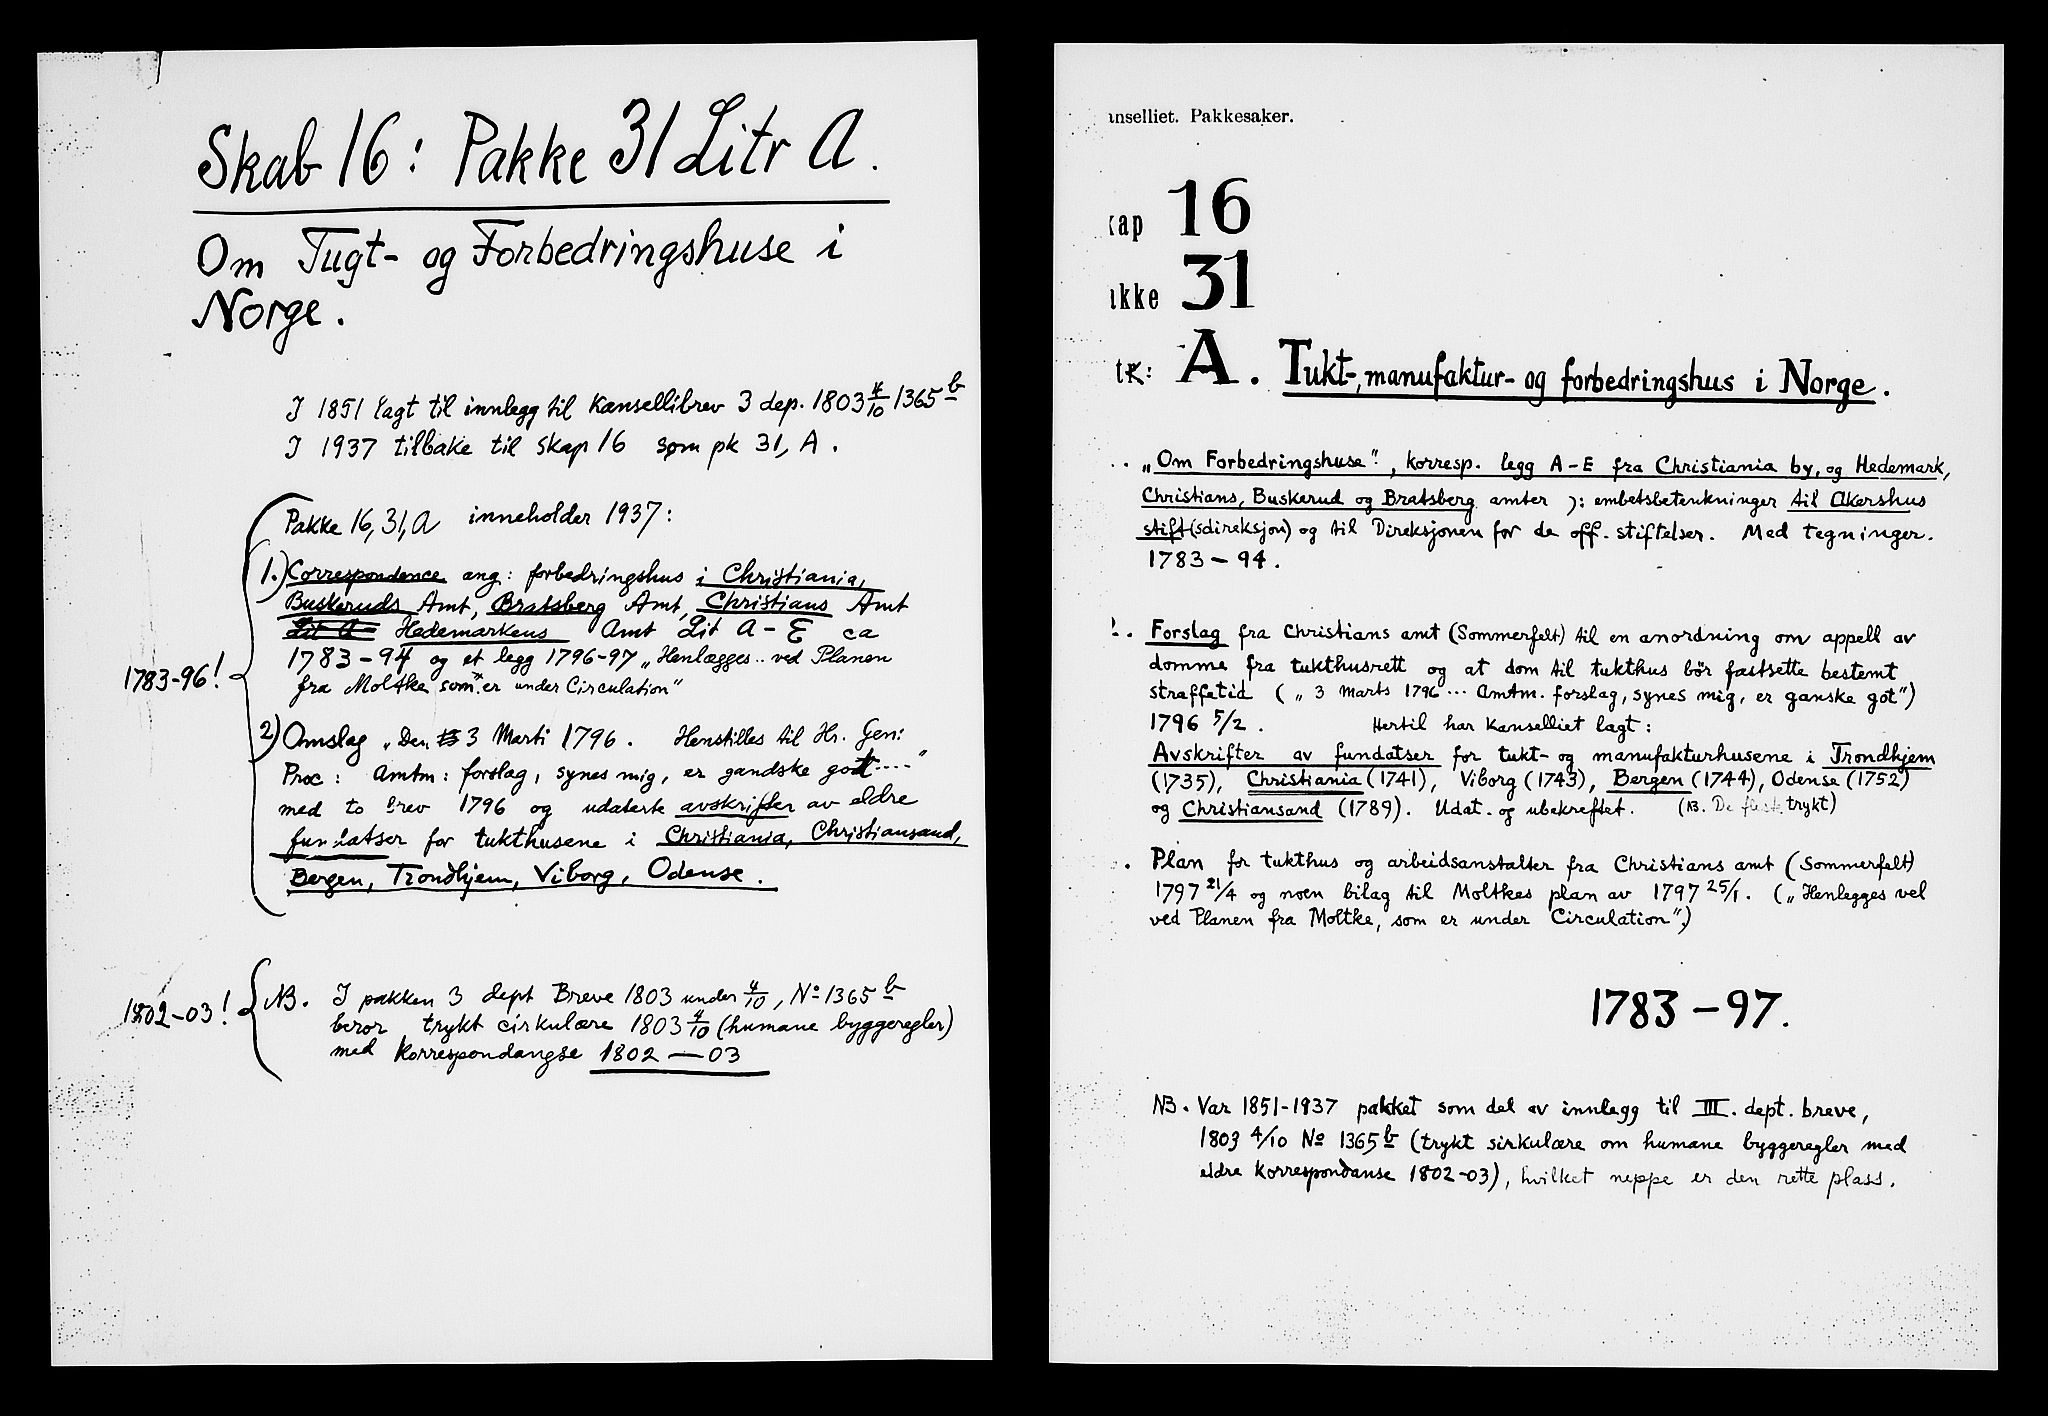 Skab 16: Pakke 31 Litr A.
Om Tugt- og Forbedringshuse i
Norge.
I 1851 lagt til innlegg til Kansellibrev 3 dep. 1803 4/10 1365 b
I 1937 tilbake til skap 16 som pk 31, A.
Pakke 16, 31, A inneholder 1937:
1.) Correspondence ang: forbedringshus i Christiania,
Buskeruds Amt, Bratsberg Amt, Christians Amt
Lit A Hedemarkens Amt Lit A-E ca
1783-94 og et legg 1796-97 „Henlægges .. ved Planen
fra Moltke som er under Circulation"
1783-96!
2) Omslag „Den 3 Marti 1796. Henstilles til Hr. Gen:
Proc: Amtm: forslag, synes mig, er gandske godt....."
med to brev 1796 og udaterte avskrifter av eldre
fundatser for tukthusene i Christiania, Christiansand,
Bergen, Trondhjem, Viborg, Odense.
1802-03!
NB. I pakken 3 dept Breve 1803 under 4/10, No 1365 b
beror trykt cirkulære 1803 4/10 (humane byggeregler)
med Korrespondangse 1802-03
anselliet. Pakkesaker.
kap 16
akke 31
tr: A. Tukt-, manufaktur- og forbedringshus i Norge.
.. „Om Forbedringshuse", korresp. legg A-E fra Christiania by, og Hedemark,
Christians, Buskerud og Bratsberg amter ɔ: embetsbetenkninger til Akershus
stift(sdireksjon) og til Direksjonen for de off. stiftelser. Med tegninger.
1783-94.
. Forslag fra Christians amt (Sommerfelt) til en anordning om appell av
domme fra tukthusrett og at dom til tukthus bör fastsette bestemt
straffetid („3 Marts 1796... Amtm. forslag, synes mig, er ganske got")
1796 5/2. Hertil har Kanselliet lagt:
Avskrifter av fundatser for tukt- og manufakturhusene i Trondhjem
(1735), Christiania (1741), Viborg (1743), Bergen (1744), Odense (1752)
og Christiansand (1789). Udat. og ubekreftet. (NB. De fleste trykt)
. Plan for tukthus og arbeidsanstalter fra Christians amt (Sommerfelt)
1797 21/4 og noen bilag til Moltkes plan av 1797 25/1. („Henlegges vel
ved Planen fra Moltke, som er under Circulation".)
1783-97.
NB. Var 1851-1937 pakket som del av innlegg til III. dept. breve,
1803 4/10 No 1365 b (trykt sirkulære om humane byggeregler med
eldre Korrespondanse 1802-03), hvilket neppe er den rette plass.